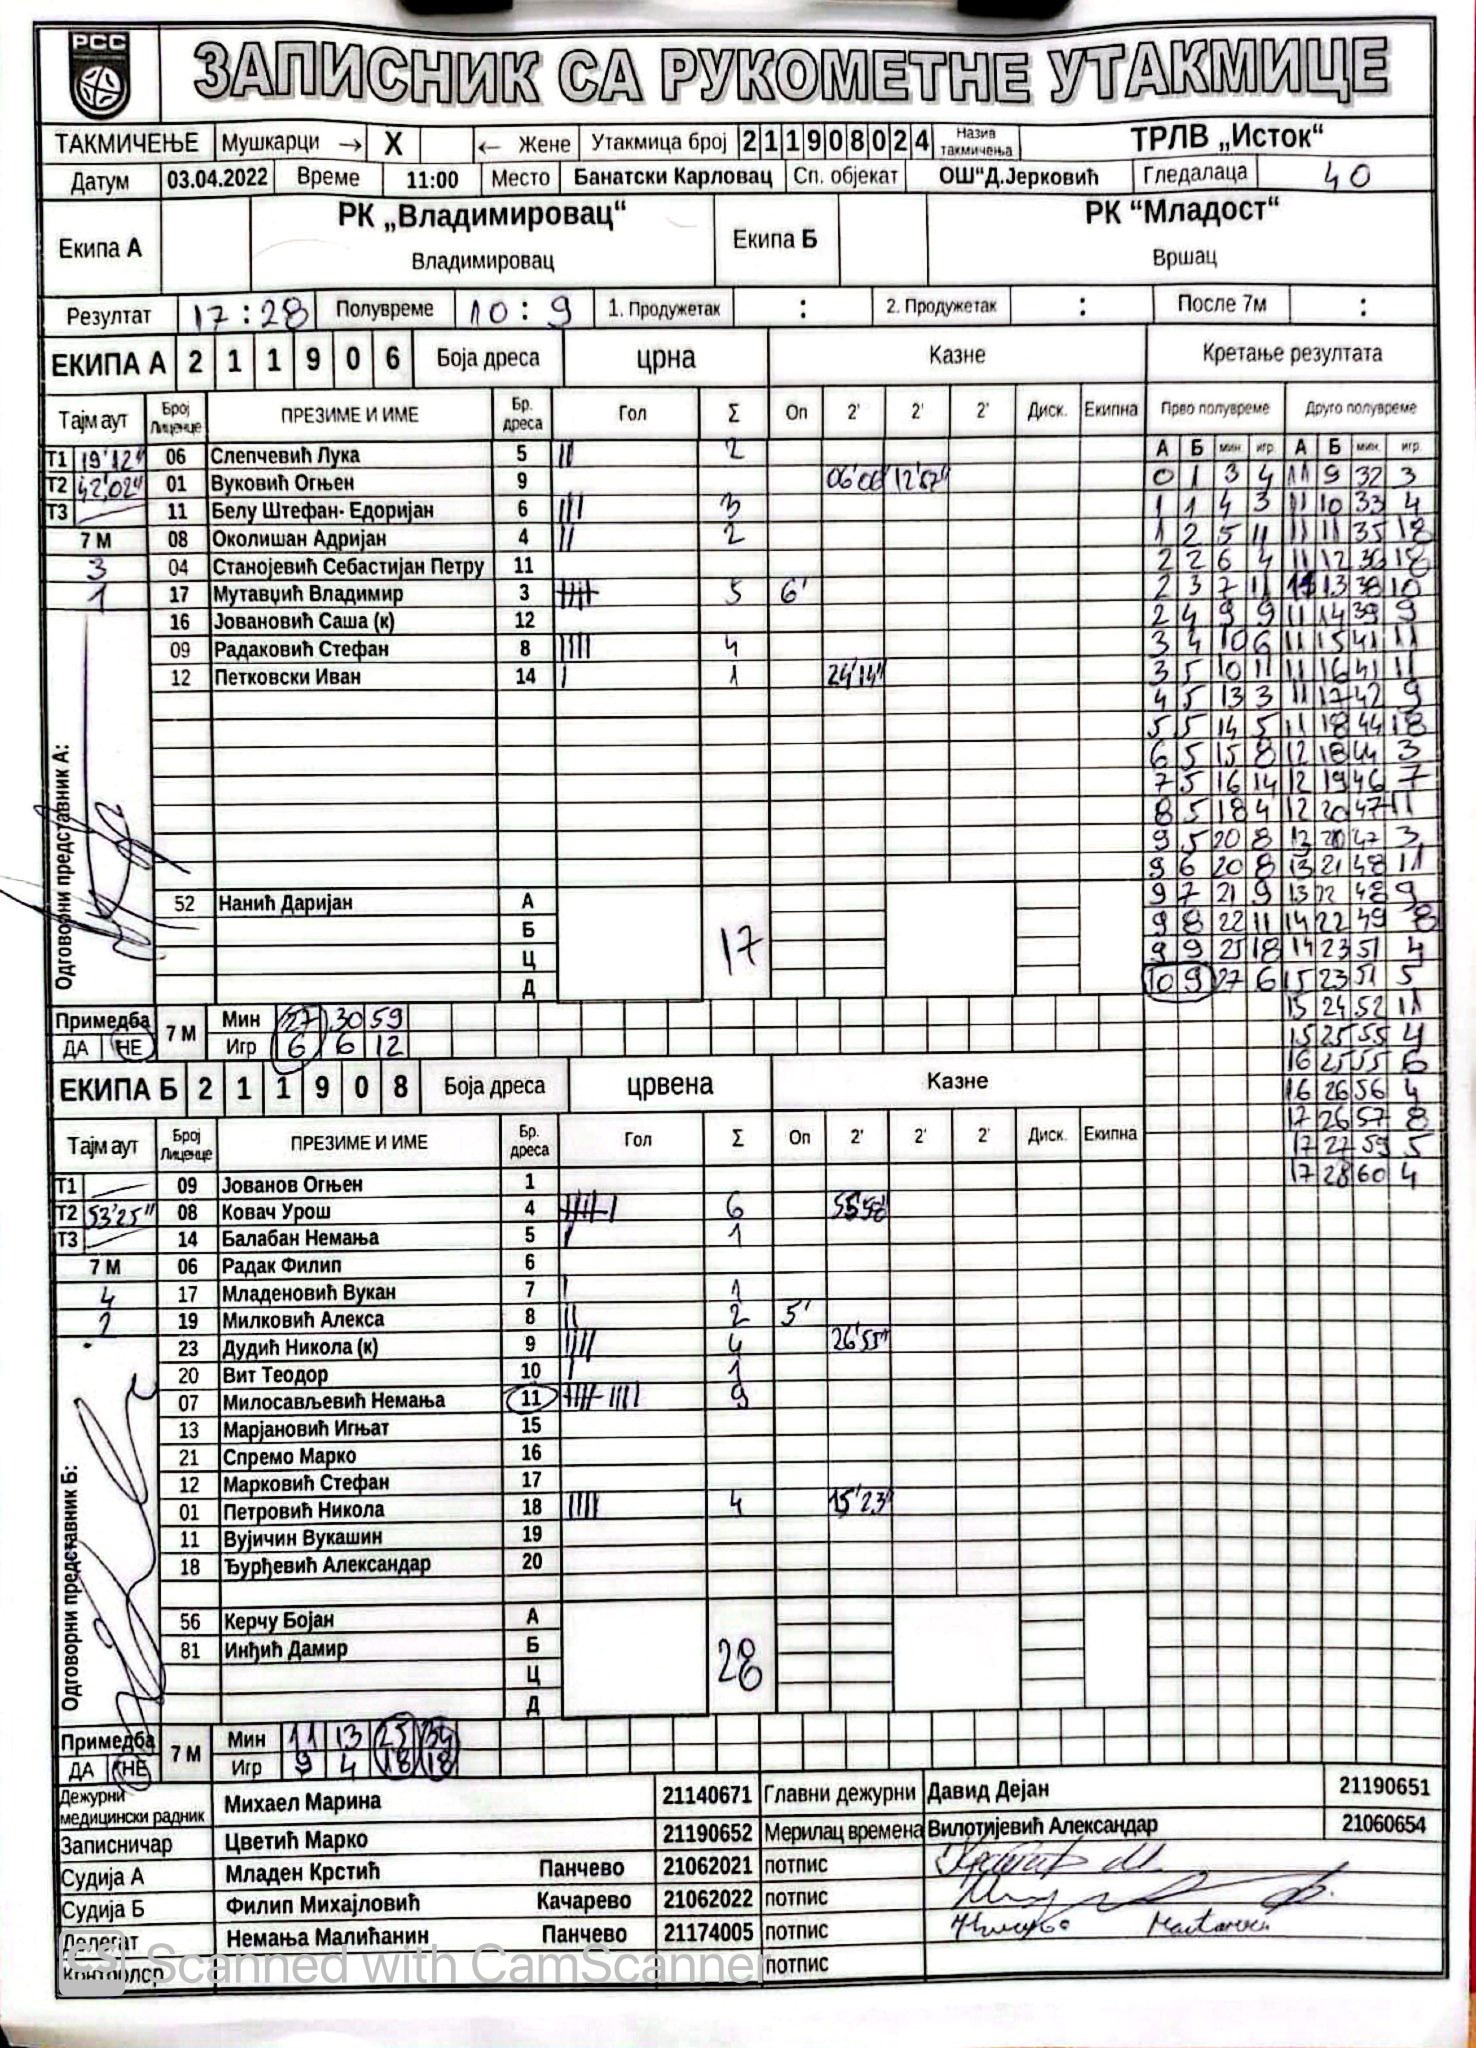 РСС
ЗАПИСНИК СА РУКОМЕТНЕ УТАКМИЦЕ
ТАКМИЧЕЊЕ Мушкарци → X ← Жене Утакмица број 2 1 1 9 0 8 0 2 4 Назив такмичења ТРЛВ „Исток“
Датум 03.04.2022 Време 11:00 Место Банатски Карловац Сп. објекат ОШ“Д.Јерковић Гледалаца 40
Екипа А РК „Владимировац“ Екипа Б РК “Младост“
Владимировац Вршац
Резултат 17:28 Полувреме 10:9 1. Продужетак : 2. Продужетак : После 7м :
ЕКИПА А 2 1 1 9 0 6 Боја дреса црна Казне Кретање резултата
Тајм аут Број Лиценце ПРЕЗИМЕ И ИМЕ Бр. дреса Гол Σ Оп 2' 2' 2' Диск. Екипна Прво полувреме Друго полувреме
Т1 19'12" 06 Слепчевић Лука 5 || 2 А Б мин. игр. А Б мин. игр.
Т2 42,02" 01 Вуковић Огњен 9 12'57" 0 1 3 4 11 9 32 3
Т3 11 Белу Штефан- Едоријан 6 ||| 3 1 1 4 3 11 10 33 4
7 М 08 Околишан Адријан 4 || 2 1 2 5 11 11 11 35 18
3 04 Станојевић Себастијан Петру 11 2 2 6 4 11 12 36 18
1 17 Мутавџић Владимир 3 5 6' 2 3 7 11 11 13 38 10
16 Јовановић Саша (к) 12 2 4 9 9 11 14 39 9
09 Радаковић Стефан 8 |||| 4 3 4 10 6 11 15 41 11
12 Петковски Иван 14 | 1 24'14" 3 5 10 11 11 16 41 11
4 5 13 3 11 17 42 9
5 5 14 5 11 18 44 18
6 5 15 8 12 18 44 3
7 5 16 14 12 19 46 7
8 5 18 4 12 20 47 11
9 5 20 8 13 20 47 3
9 6 20 8 13 21 48 11
52 Нанић Даријан А 9 7 21 9 13 22 48 9
Б 17 9 8 22 11 14 22 49 8
Ц 9 9 25 18 14 23 51 4
Д 10 9 27 6 15 23 51 5
Одговорни представник А:
Примедба 7 М Мин 27 30 59 15 24 52 11
ДА НЕ Игр 6 6 12 15 25 55 4
16 25 55 6
ЕКИПА Б 2 1 1 9 0 8 Боја дреса црвена Казне 16 26 56 4
17 26 57 8
Тајм аут Број Лиценце ПРЕЗИМЕ И ИМЕ Бр. дреса Гол Σ Оп 2' 2' 2' Диск. Екипна 17 27 59 5
Т1 09 Јованов Огњен 1 17 28 60 4
Т2 53'25" 08 Ковач Урош 4 6 55'58"
Т3 14 Балабан Немања 5 | 1
7 М 06 Радак Филип 6
4 17 Младеновић Вукан 7 | 1
2 19 Милковић Алекса 8 || 2 5'
23 Дудић Никола (к) 9 |||| 4 26'55"
20 Вит Теодор 10 | 1
07 Милосављевић Немања 11 9
13 Марјановић Игњат 15
21 Спремо Марко 16
12 Марковић Стефан 17
01 Петровић Никола 18 |||| 4 15'23"
11 Вујичин Вукашин 19
18 Ђурђевић Александар 20
56 Керчу Бојан А
81 Инђић Дамир Б 28
Ц
Д
Одговорни представник Б:
Примедба 7 М Мин 11 13 25 34
ДА НЕ Игр 9 4 18 18
Дежурни медицински радник Михаел Марина 21140671 Главни дежурни Давид Дејан 21190651
Записничар Цветић Марко 21190652 Мерилац времена Вилотијевић Александар 21060654
Судија А Младен Крстић Панчево 21062021 потпис
Судија Б Филип Михајловић Качарево 21062022 потпис
Делегат Немања Малићанин Панчево 21174005 потпис
Контролор потпис
CS Scanned with CamScanner